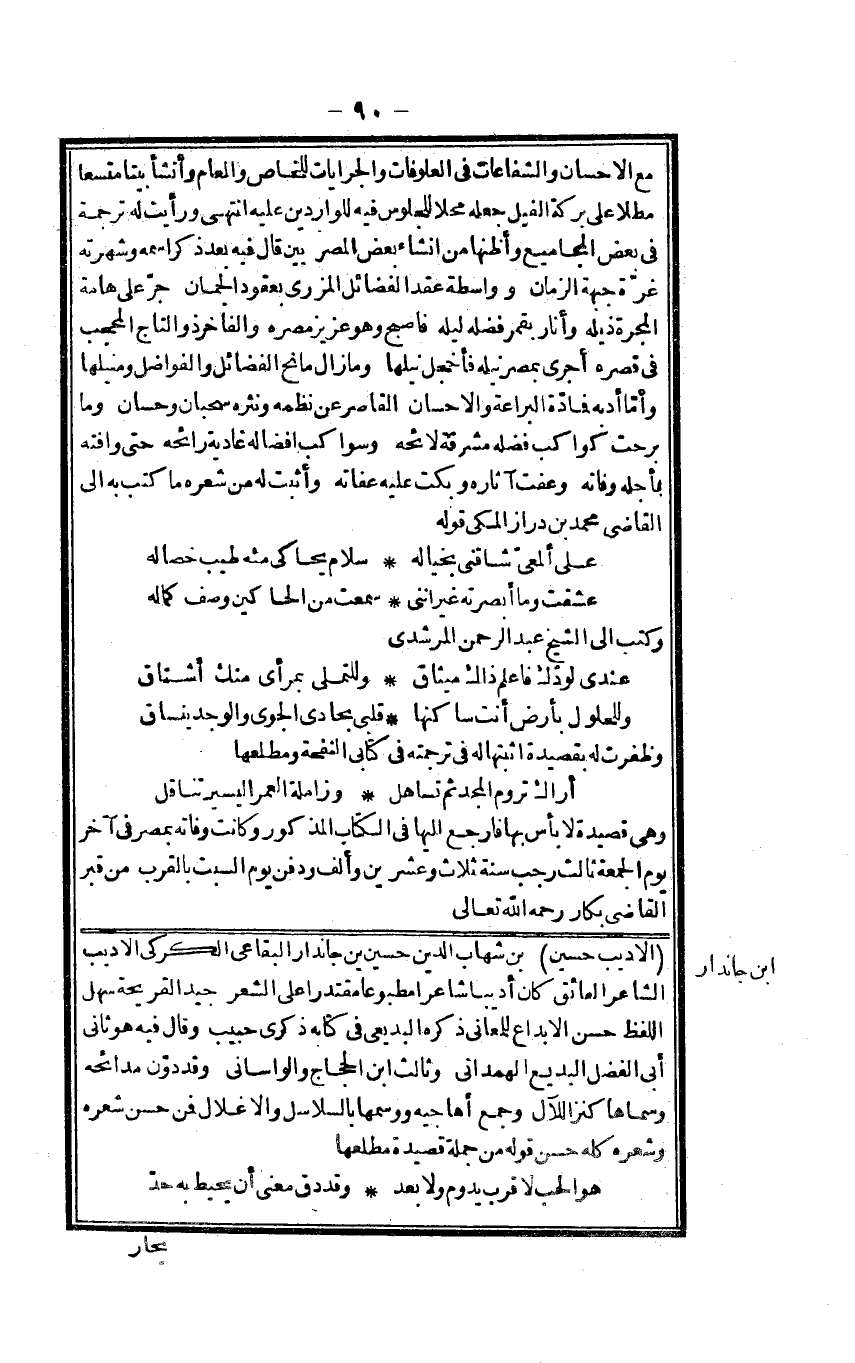 - ٩٠ -
مع الاحسان والشفاعات فى العلوفات والجرايات للخاص والعام وأنشأ بيتا متسعا
مطلا على بركة الفيل جعله محلا للجلوس فيه للواردين عليه انتهى ورأيت له ترجمة
فى بعض المجاميع وأظنها من انشاء بعض المصريين قال فيه بعد ذكر اسمه وشهرته
غرّة جبهة الزمان وواسطة عقد الفضائل المزرى بعقود الجمان جرّ على هامة
المجرة ذيله وأنار بقمر فضله ليله فاصبح وهو عزيز مصره والفاخر ذو التاج المحجب
فى قصره أجرى بمصر نيله فأخجل نيلها ومازال مانح الفضائل والفواضل ومنيلها
وأمّا أدبه فمادّة البراعة والاحسان القاصر عن نظمه ونثره سحبان وحسان وما
برحت كواكب فضله مشرقة لائحه وسواكب افضاله غادية رائحه حتى وافته
بأجله وفاته وعفت آثاره وبكت عليه عفاته وأثبت له من شعره ما كتب به الى
القاضى محمد بن دراز المكى قوله
على ألمعىّ شاقنى بخياله * سلام يحاكى منه طيب خصاله
عشقت وما أبصرته غير اننى * سمعت من الحاكين وصف كماله
وكتب الى الشيخ عبد الرحمن المرشدى
عندى لودّك فاعلم ذاك ميثاق * وللتملى بمرأى منك أشتاق
وللحلول بأرض أنت ساكنها * قلبى بحادى الجوى والوجد ينساق
وظفرت له بقصيدة اثبتها له فى ترجمته فى كتابى النفحة ومطلعها
أراك تروم المجد ثم تساهل * وزاملة العمر اليسير تناقل
وهى قصيدة لا بأس بها فارجع اليها فى الكتاب المذكور وكانت وفاته بمصر فى آخر
يوم الجمعة ثالث رجب سنة ثلاث وعشرين وألف ودفن يوم السبت بالقرب من قبر
القاضى بكار رحمه الله تعالى
(الاديب حسين) بن شهاب الدين حسين بن جاندار البقاعى الكركى الاديب
ابن جاندار
الشاعر الفائق كان أديبا شاعرا مطبوعا مقتدرا على الشعر جيد القريحة سهل
اللفظ حسن الابداع للمعانى ذكره البديعى فى كتابه ذكرى حبيب وقال فيه هو ثانى
أبى الفضل البديع الهمدانى وثالث ابن الحجاج والواسانى وقد دوّن مدائحه
وسماها كنز اللآل وجمع أهاجيه ووسمها بالسلاسل والاغلال فمن حسن شعره
وشعره كله حسن قوله من جملة قصيدة مطلعها
هو الحب لا قرب يدوم ولا بعد * وقد دق معنى أن يحيط به حدّ
يحار